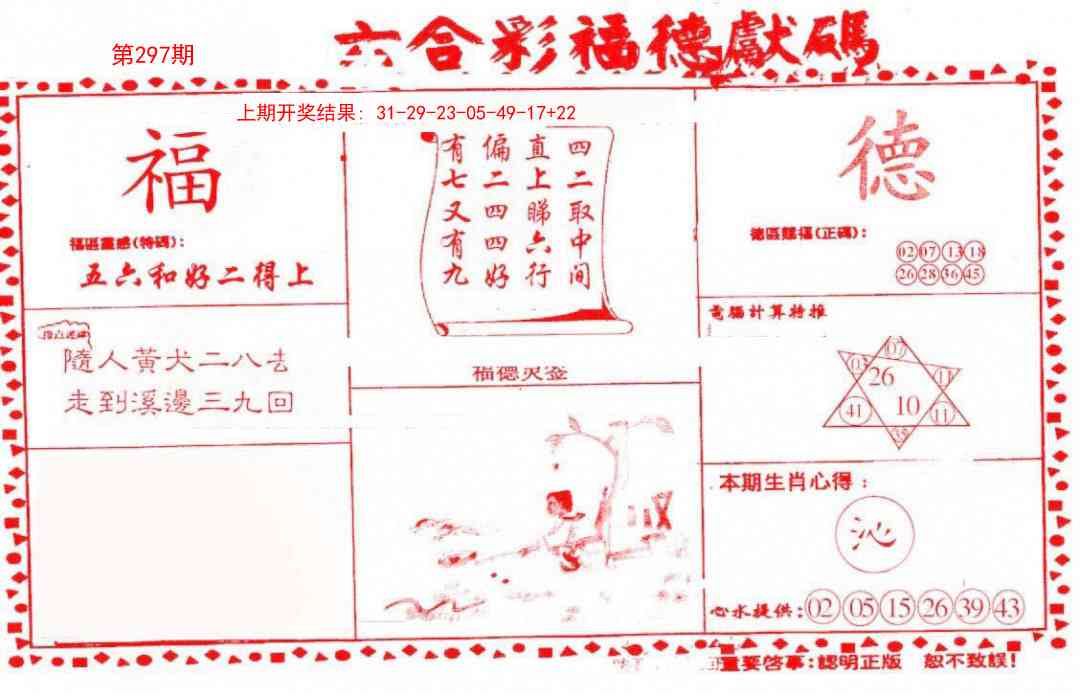 六合彩福德獻碼
第297期
上期开奖结果: 31-29-23-05-49-17+22
福
福區靈感(特碼):
五六和好二得上
隨人黄犬二八去
走到溪邊三九回
四二取中间
直上睇六行
偏二四四好
有七又有九
福德灵签
德
德區賦福(正碼):
02 07 13 18
26 28 36 45
電腦計算特推
07
03 26 11
41 10 11
本期生肖心得:
沁
心水提供: 02 05 15 26 39 43
重要啓事:認明正版 恕不致誤!